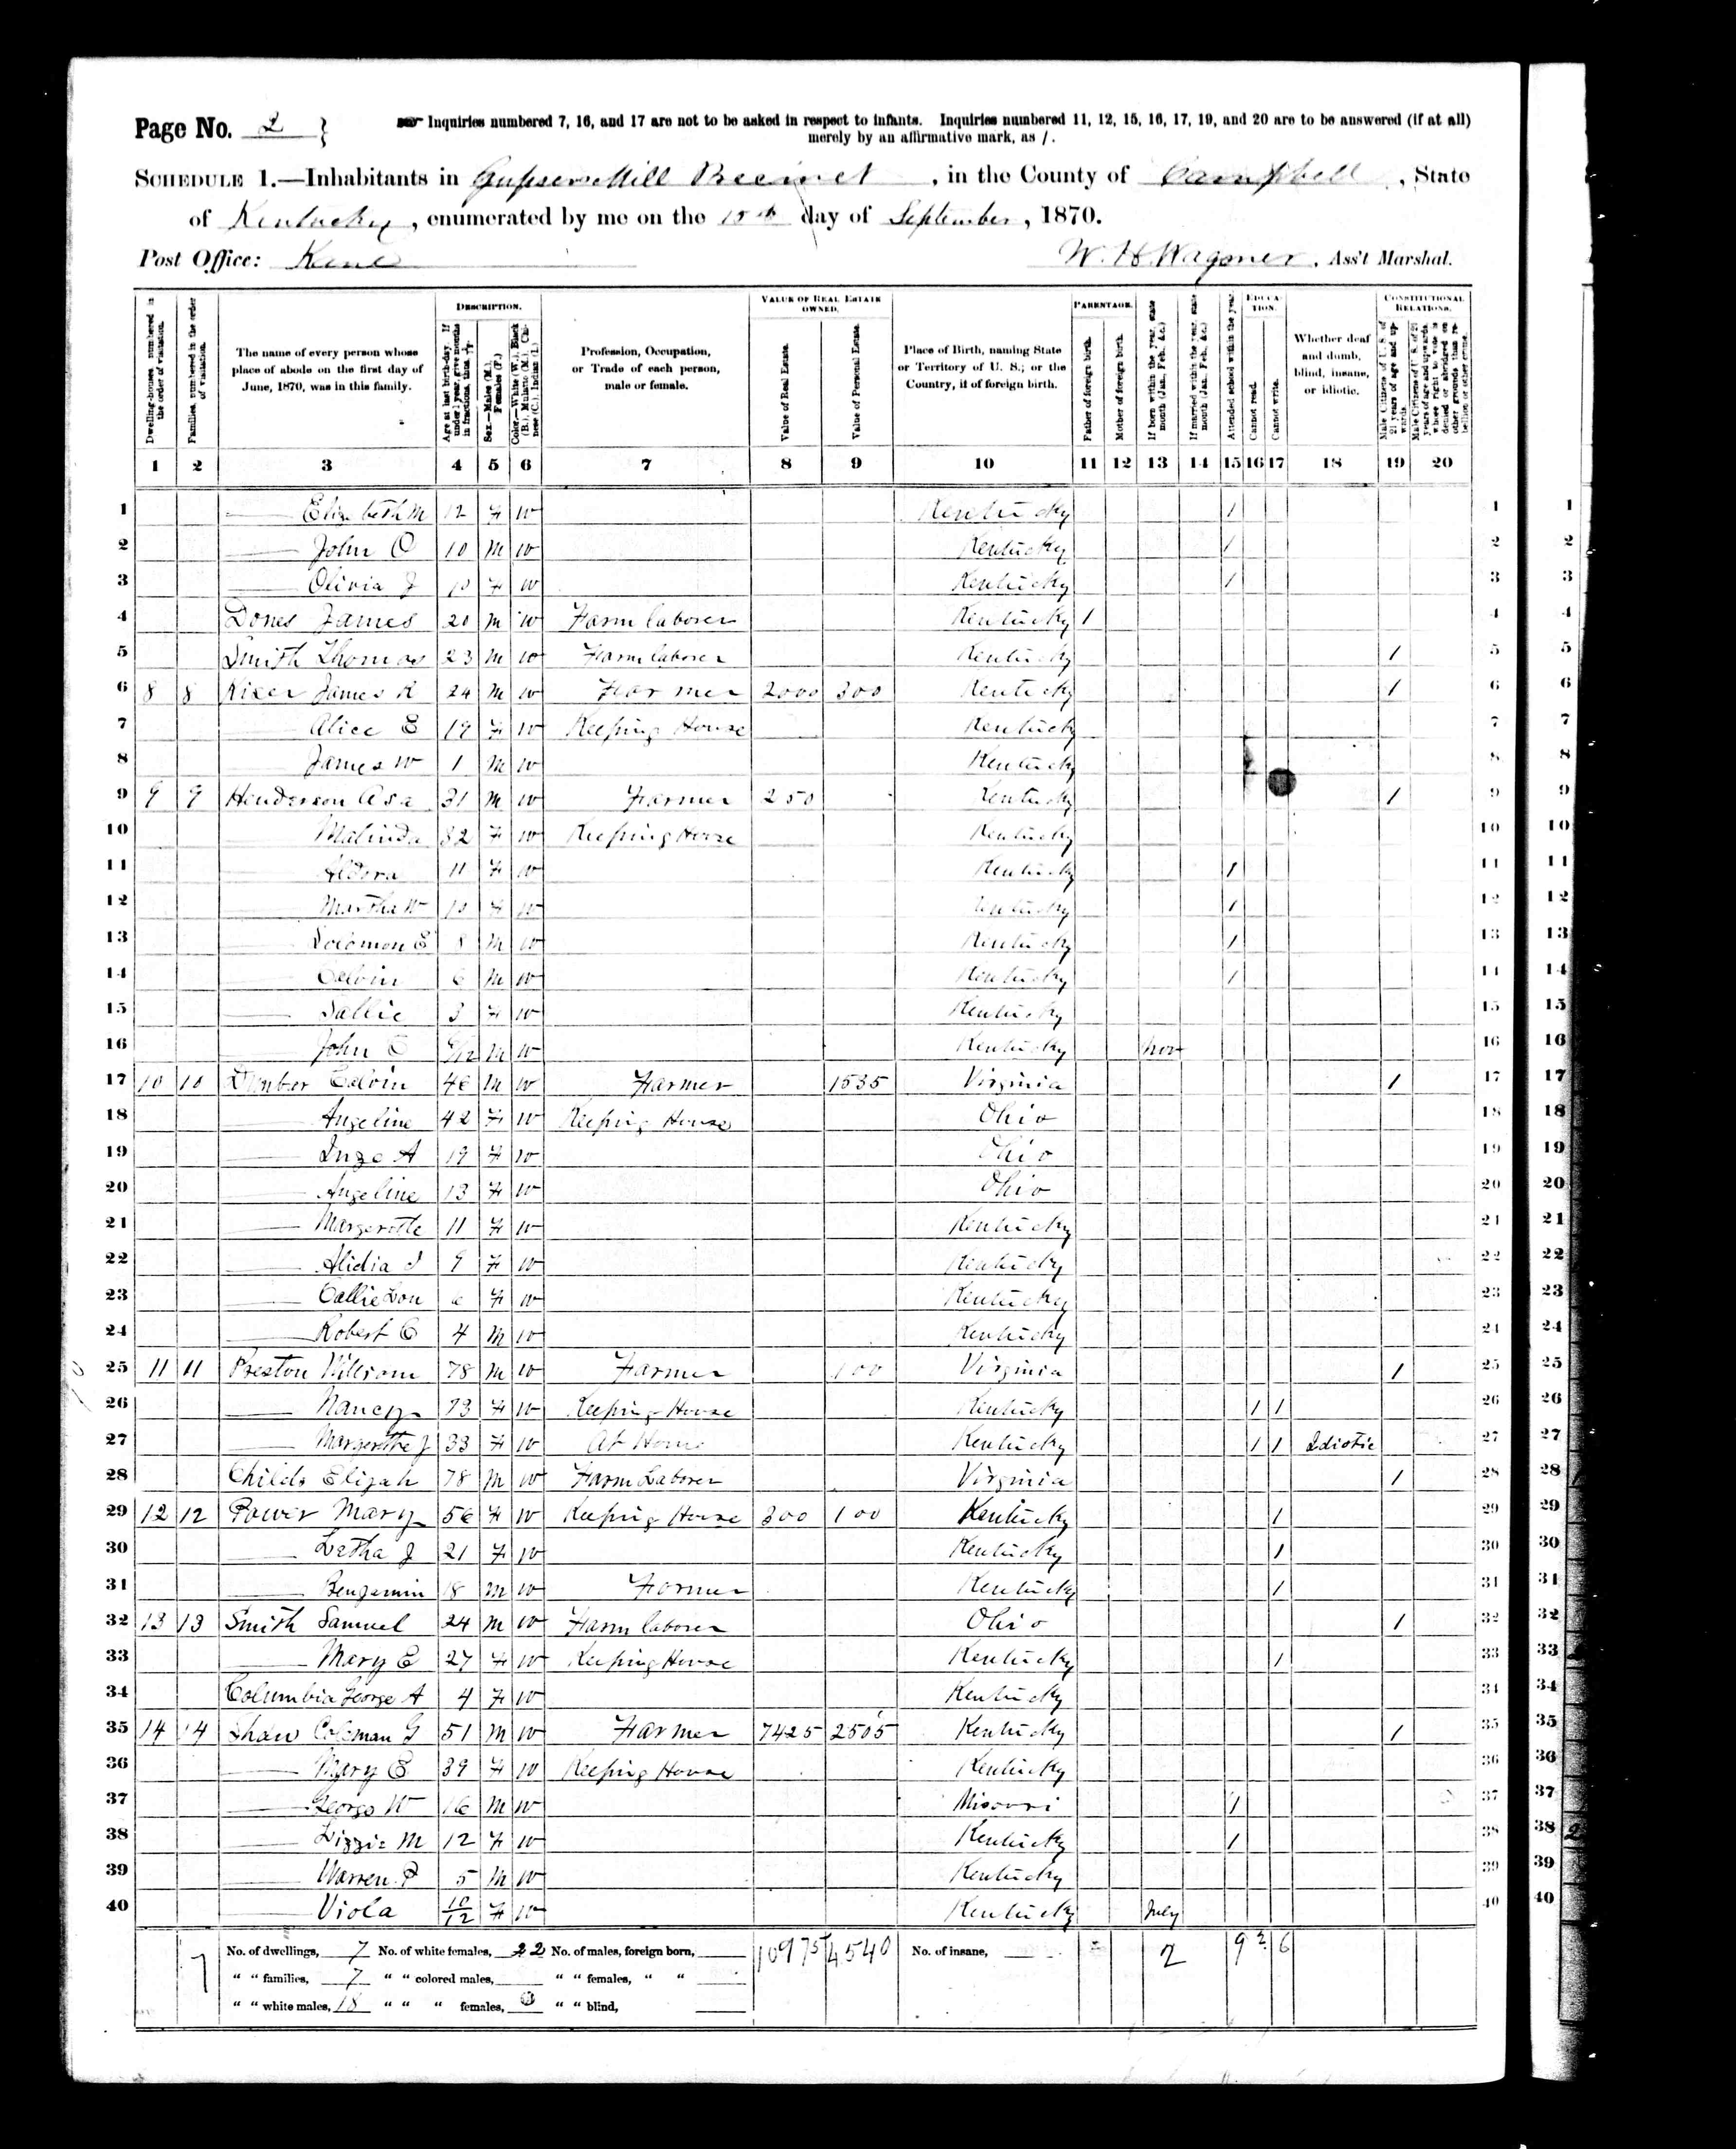 Page No. 2
Inquiries numbered 7, 16, and 17 are not to be asked in respect to infants. Inquiries numbered 11, 12, 15, 16, 17, 19, and 20 are to be answered (if at all)
merely by an affirmative mark, as /.
SCHEDULE 1.—Inhabitants in Mill Precinct, in the County of Campbell, State
of Kentucky, enumerated by me on the 15th day of September, 1870.
Post Office:
W. H. Wagoner, Ass't Marshal.
DESCRIPTION. VALUE OF REAL ESTATE OWNED. PARENTAGE. EDUCATION. CONSTITUTIONAL RELATIONS.
Dwelling-houses, numbered in the order of visitation.
Families, numbered in the order of visitation.
The name of every person whose place of abode on the first day of June, 1870, was in this family.
Age at last birth-day. If under 1 year, give months in fractions, thus
Sex.—Males (M.), Females (F.)
Color.—White (W.), Black (B.), Mulatto (M.), Chinese (C.), Indian (I.)
Profession, Occupation, or Trade of each person, male or female.
Value of Real Estate.
Value of Personal Estate.
Place of Birth, naming State or Territory of U. S.; or the Country, if of foreign birth.
Father of foreign birth.
Mother of foreign birth.
If born within the year, state month (Jan., Feb., &c.)
If married within the year, state month (Jan., Feb., &c.)
Attended school within the year.
Cannot read.
Cannot write.
Whether deaf and dumb, blind, insane, or idiotic.
Male Citizens of U. S. of 21 years of age and upwards.
Male Citizens of U. S. of 21 years of age and upwards, whose right to vote is denied or abridged on other grounds than rebellion or other crime.
1 2 3 4 5 6 7 8 9 10 11 12 13 14 15 16 17 18 19 20
1 Elizabeth M 12 F W Kentucky / 1
2 John O 10 M W Kentucky / 2
3 Olivia J 10 F W Kentucky / 3
4 James 20 M W Farm laborer Kentucky / 4
5 Smith Thomas 23 M W Farm laborer Kentucky / 5
6 8 8 Kizer James R 24 M W Farmer 2000 300 Kentucky / 6
7 Alice E 19 F W Keeping House Kentucky 7
8 James W 1 M W Kentucky 8
9 9 9 Henderson Asa 31 M W Farmer 250 Kentucky / 9
10 Malinda 32 F W Keeping House Kentucky 10
11 Aldora 11 F W Kentucky / 11
12 Martha W 10 F W Kentucky / 12
13 Solomon E 8 M W Kentucky / 13
14 Calvin 6 M W Kentucky / 14
15 Sallie 3 F W Kentucky 15
16 John E M W Kentucky Nov 16
17 10 10 Edvin 46 M W Farmer 1535 Virginia / 17
18 Angeline 42 F W Keeping House Ohio 18
19 A 19 F W Ohio 19
20 Angeline 13 F W Ohio 20
21 Margerette 11 F W Kentucky 21
22 Alidia 9 F W Kentucky 22
23 Callie Lou 6 F W Kentucky 23
24 Robert C 4 M W Kentucky 24
25 11 11 Preston William 78 M W Farmer 100 Virginia / 25
26 Nancy 73 F W Keeping House Kentucky / / 26
27 Margerette J 33 F W At Home Kentucky / / Idiotic 27
28 Childs Elijah 78 M W Farm Laborer Virginia / 28
29 12 12 Power Mary 56 F W Keeping House 300 100 Kentucky / 29
30 Letha J 21 F W Kentucky / 30
31 Bengemin 18 M W Farmer Kentucky / 31
32 13 13 Smith Samuel 24 M W Farm laborer Ohio / 32
33 Mary E 27 F W Keeping House Kentucky / 33
34 Columbia George A 4 F W Kentucky 34
35 14 14 Shaw Coleman G 51 M W Farmer 7425 2505 Kentucky / 35
36 Mary E 39 F W Keeping House Kentucky 36
37 George W 16 M W Misouri / 37
38 Lizzie M 12 F W Kentucky / 38
39 Warren P 5 M W Kentucky 39
40 Viola 10/12 F W Kentucky July 40
No. of dwellings, 7 No. of white females, 22 No. of males, foreign born, 10975 4540 No. of insane, 2 9 2 6
" " families, 7 " " colored males, " " females, " "
" " white males, 18 " " " females, " " blind,